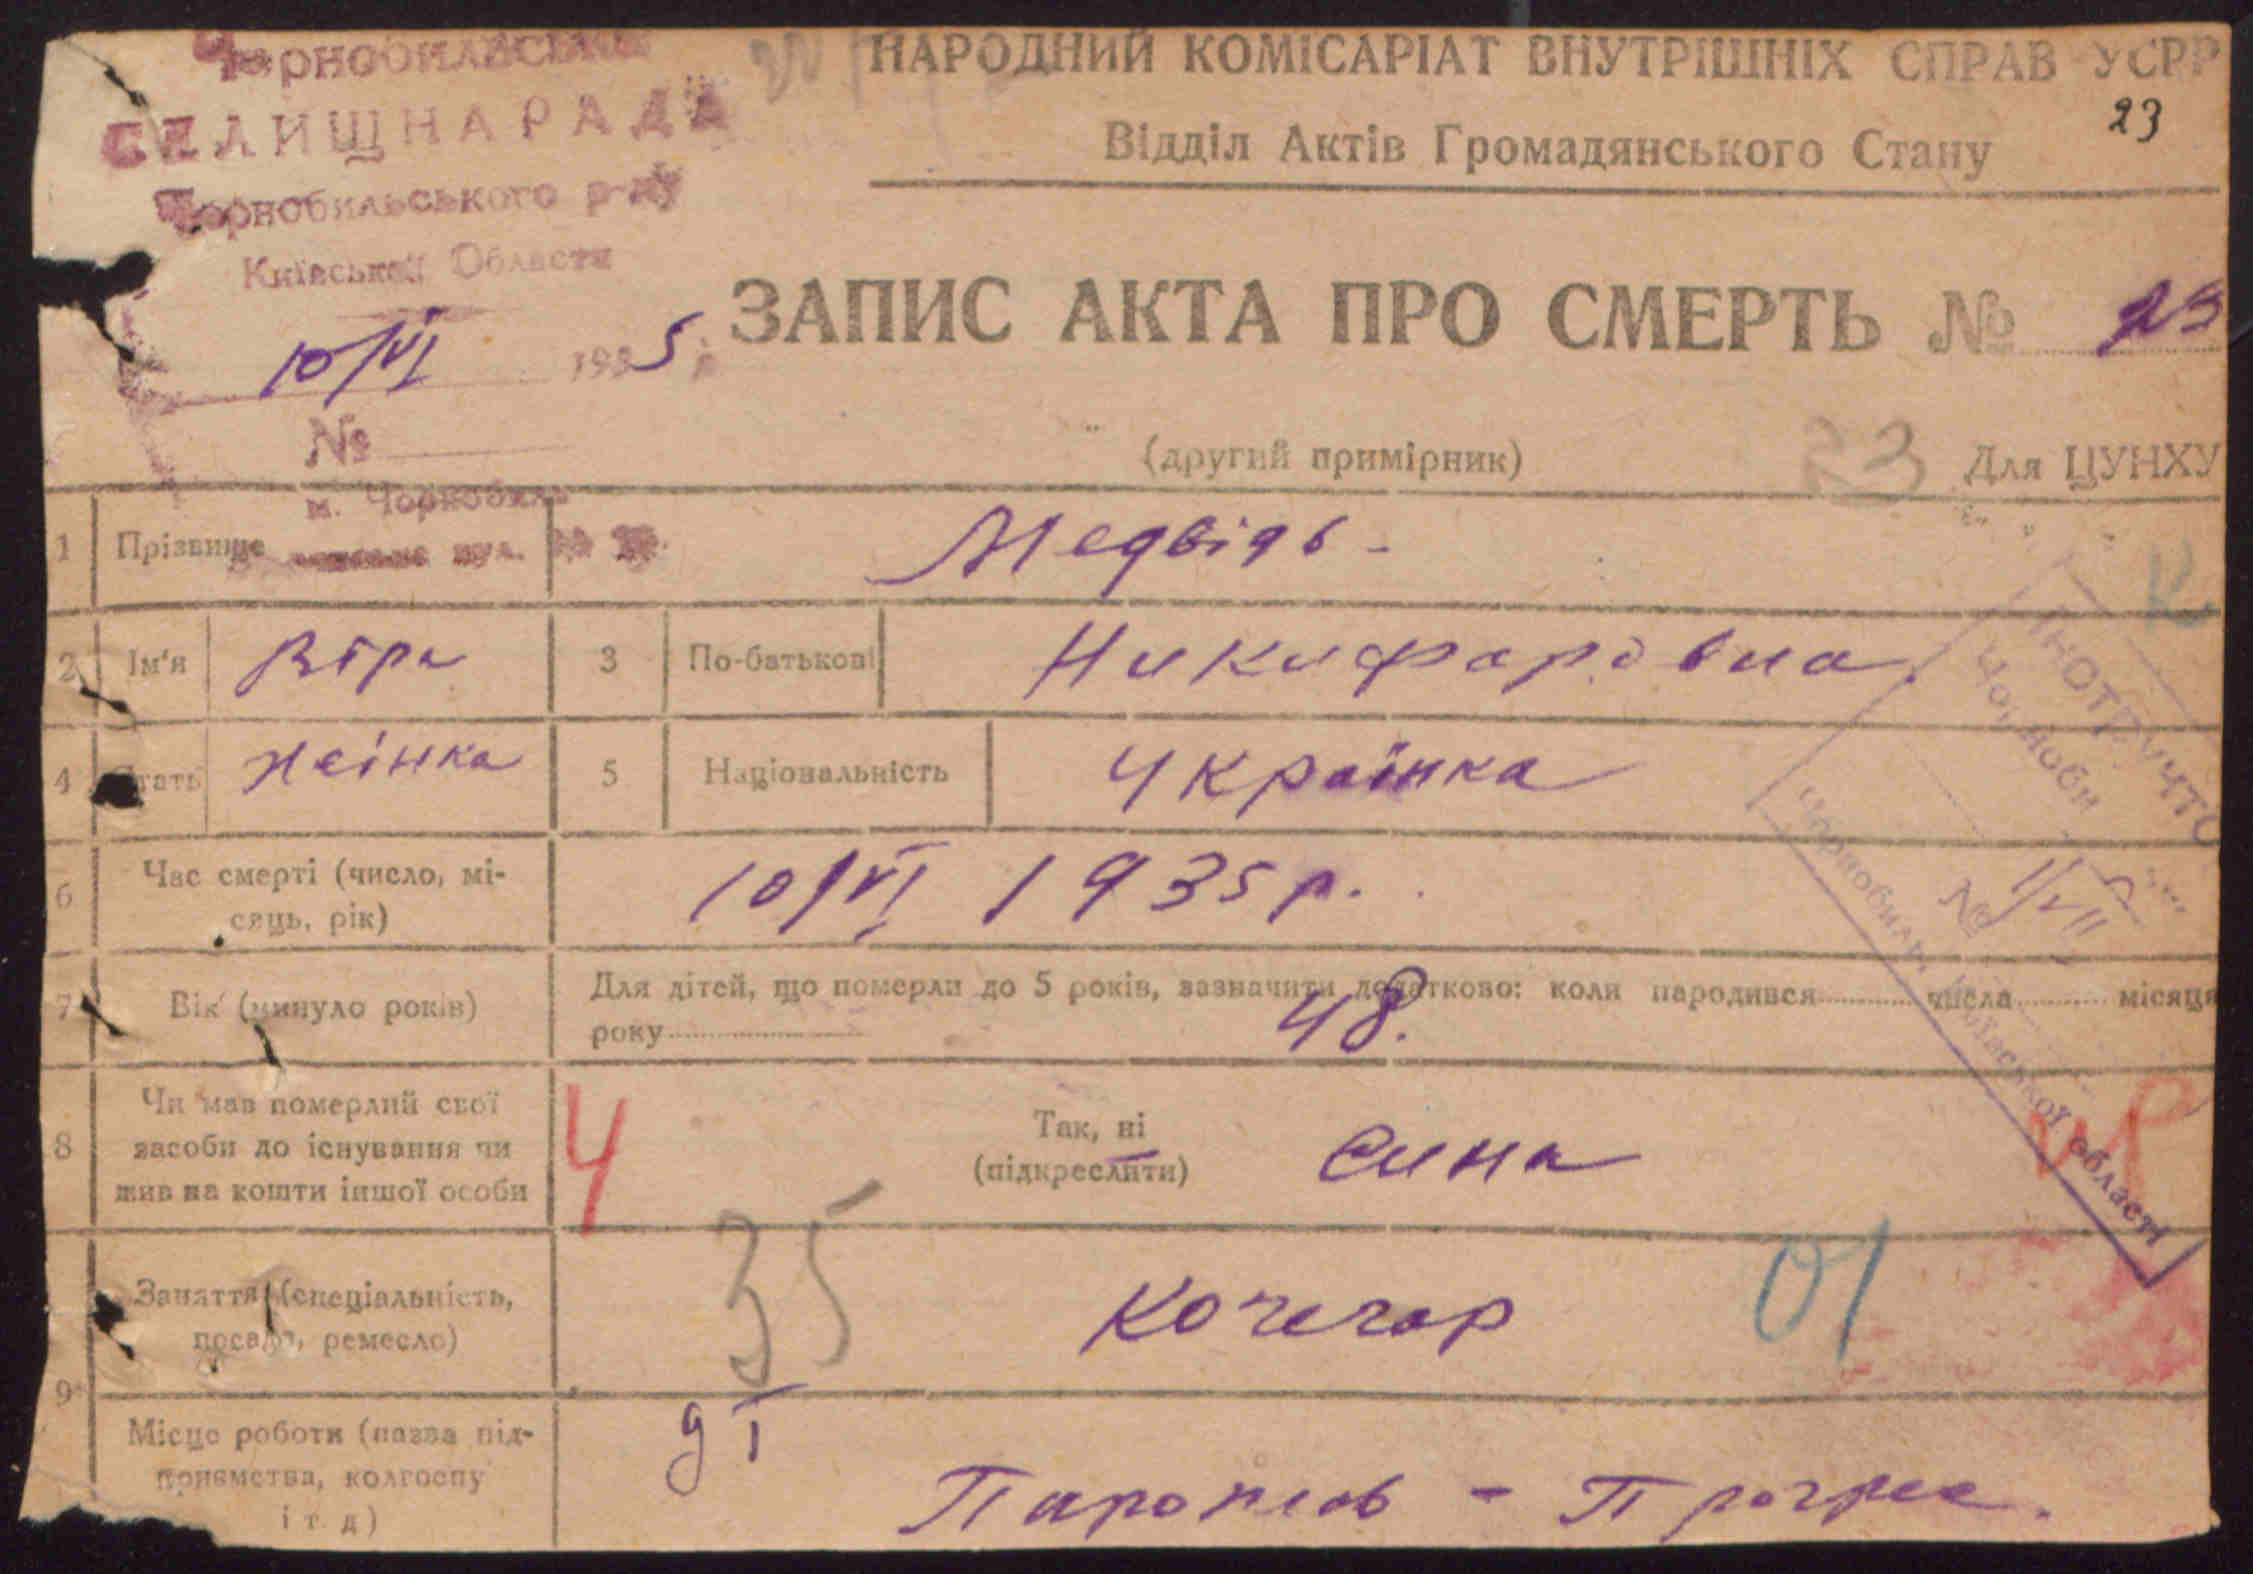 Чорнобильська
СЕЛИЩНА РАДА
Чорнобильського р-ну
Київської Области
10/VI 1935 р.
№
м. Чорнобиль
вул.
НАРОДНИЙ КОМІСАРІАТ ВНУТРІШНІХ СПРАВ УСРР
23
Відділ Актів Громадянського Стану
ЗАПИС АКТА ПРО СМЕРТЬ № 23
(другий примірник)
23
Для ЦУНХУ
1 Прізвище Медвідь -
2 Ім'я Віра 3 По-батькові Никифоровна
4 Стать жінка 5 Національність Українка
6 Час смерті (число, мі-
сяць, рік) 10/VI 1935 р.
7 Вік (минуло років) Для дітей, що померли до 5 років, зазначити додатково: коли народився числа місяця
року 48.
8 Чи мав померлий свої
засоби до існування чи
жив на кошти іншої особи
4
Так, ні
(підкреслити) сина
9 Заняття (спеціальність,
посада, ремесло) 35 Кочегар 01
Місце роботи (назва під-
приємства, колгоспу
і т. д)
Пароплов - Прогрес.
Чорнобиль, Київської області
№ 1/VII